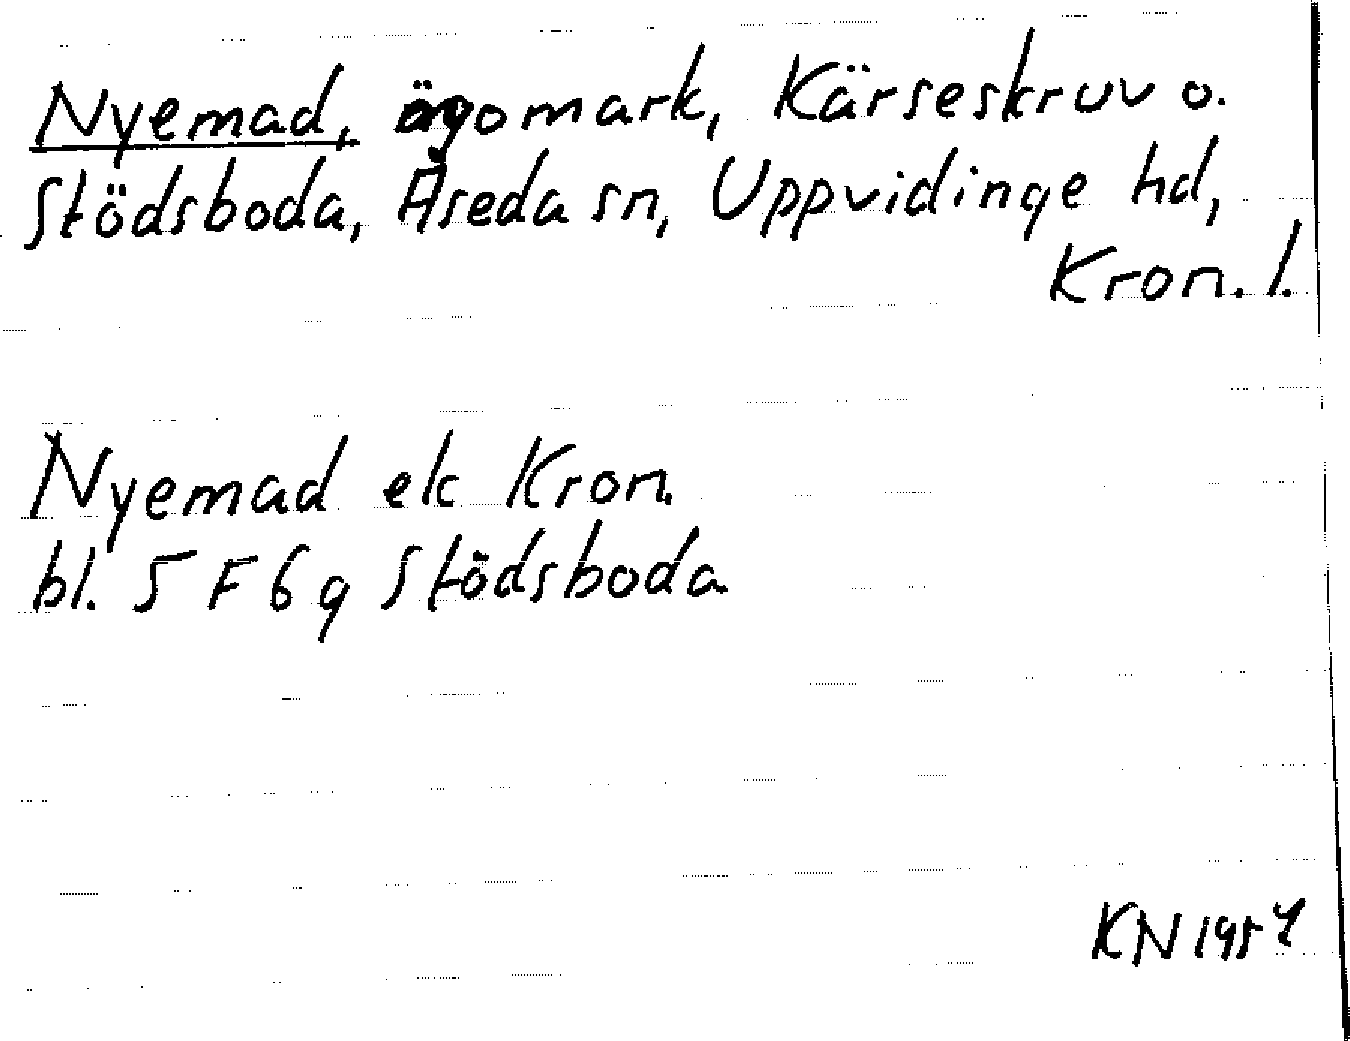 Nyemad, ägomark, Kärseskruv o.
Stödsboda, Åseda sn, Uppvidinge hd,
Kron. l.
Nyemad ek Kron.
bl. 5 F 6 g Stödsboda
KN 1957